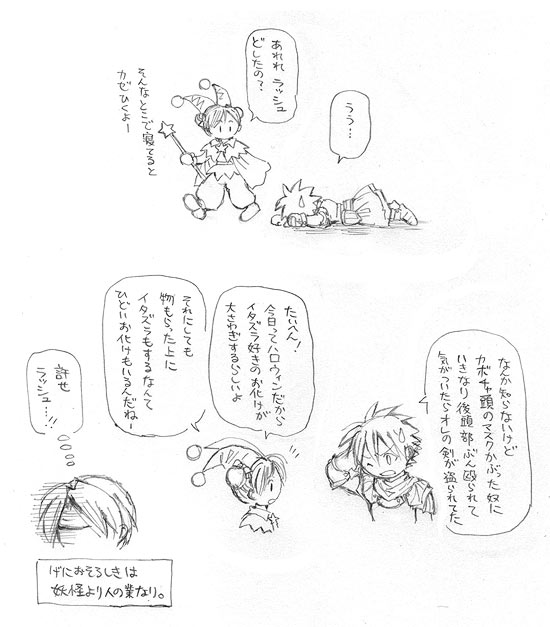 あれれ ラッシュ
どしたの?
そんなとこで寝てると
カゼひくよー
うう…
なんか知らないけど
カボチャ頭のマスクかぶった奴に
いきなり後頭部ぶん殴られて
気がついたらオレの剣が盗られてた
たいへん!
今日ってハロウィンだから
イタズラ好きのお化けが
大さわぎするらしいよ
それにしても
物もらった上に
イタズラもするなんて
ひどいお化けもいるんだねー
許せ
ラッシュ…!!
げにおそろしきは
妖怪より人の業なり。